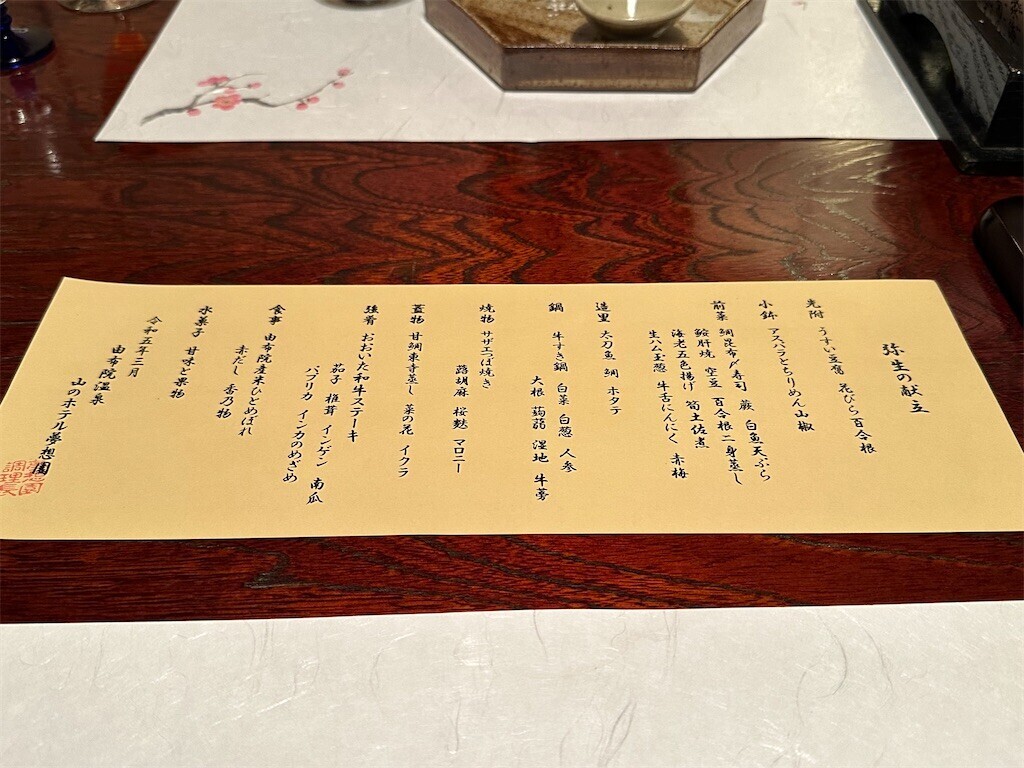 弥生の献立
先附 うすい豆腐 花びら百合根
小鉢 アスパラとちりめん山椒
前菜 鯛昆布〆寿司 蕨 白魚天ぷら
鮟肝焼 空豆 百合根二身蒸し
海老五色揚げ 筍土佐煮
生ハム玉葱 牛舌にんにく 赤梅
造里 太刀魚 鯛 ホタテ
鍋 牛すき鍋 白菜 白葱 人参
大根 蒟蒻 湿地 牛蒡
焼物 サザエつぼ焼き
蕗胡麻 桜麩 マロニー
蓋物 甘鯛東寺蒸し 菜の花 イクラ
強肴 おおいた和牛ステーキ
茄子 椎茸 インゲン 南瓜
パプリカ インカのめざめ
食事 由布院産米ひとめぼれ
赤だし 香乃物
水菓子 甘味と果物
令和五年三月
由布院温泉
山のホテル夢想園
夢想園
調理長